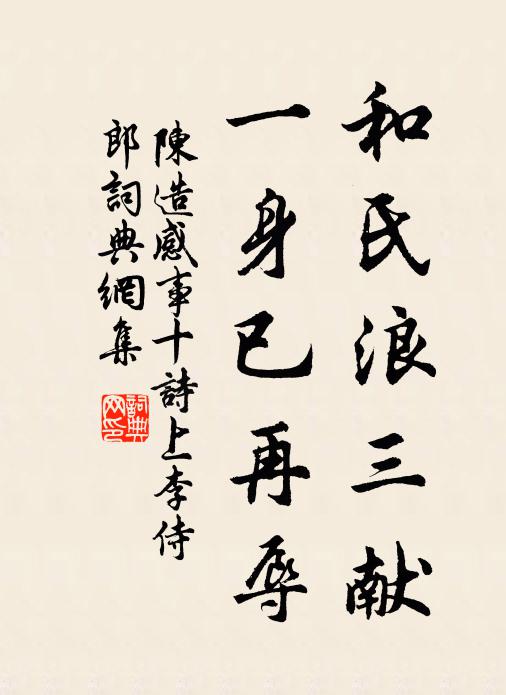 和氏浪三献
一身已再辱
陳造感事十詩上李侍
郎詞典網集
詞典
网印